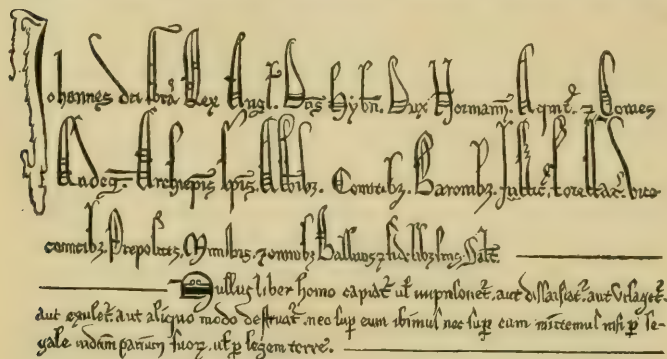 Johannes dei gra Rex Angl. Dns Hybn. Dux Normann. Aqnt. ⁊ Comes
Andeg. Archiepis Epis. Abbibz. Comitibz. Baronibz. Justic. Forestar. Vice
comitibz. Prepositis. Ministris. ⁊ omnibz Ballivis ⁊ fidelibz suis. Salt.
Nullus liber homo capiat ul inprisonet. aut dissaisiat. aut utlaget.
aut exulet. aut aliquo modo destruat. nec sup eum ibimus nec sup eum mittemus nisi p le-
gale judicium parium suoz. ul p legem terre.